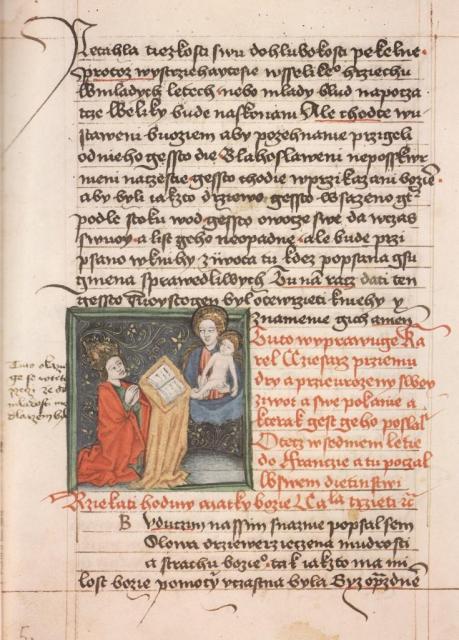 Netahla tiezkosti swu dohlubokosti pekelne
protoz wystrziehaytesie wsselikeº hrziechu
Wmladych letech nebo mlady blud napocza
tcze weliky bude naskonani Ale chodte wu
staweni buoziem aby pozehnanie przigeli
odnieho gessto die Blahoslaweni neposskwr
nieni naczestie gessto chodie wprzikazani bozie
aby byli iakzto drziewo gessto wsazeno gt
podle stoku wod gessto owocze swe da wczas
swuoy a list geho neopadne ale bude przi
psano wknihy ziwota tu kdez popsana gsu
gmena sprawedliwych Bu na racz dati ten
gessto Twoystogen byl otewrzieti kniehy y
znamenie gich amen
Tuto wyprawuge Ka
rel Cziesarz prziemu
dry a przieurozeny swoy
ziwot a swe pokanie a
kterak gest geho poslal
Otecz wsedmem letie
do Francze a tu poczal
wswem dietinstwi
Rziekati hodiny matky bozie
Buducim nassim snaznie popsal sem
Slowa drziewerzieczena mudrosti
a strachu bozieº tak iakzto ma mi
lost bozie pomoczy vczastna byla